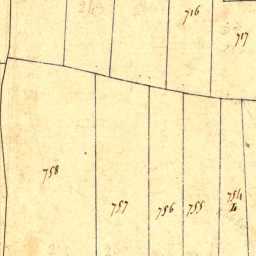 716
717
758
757
756
755
754